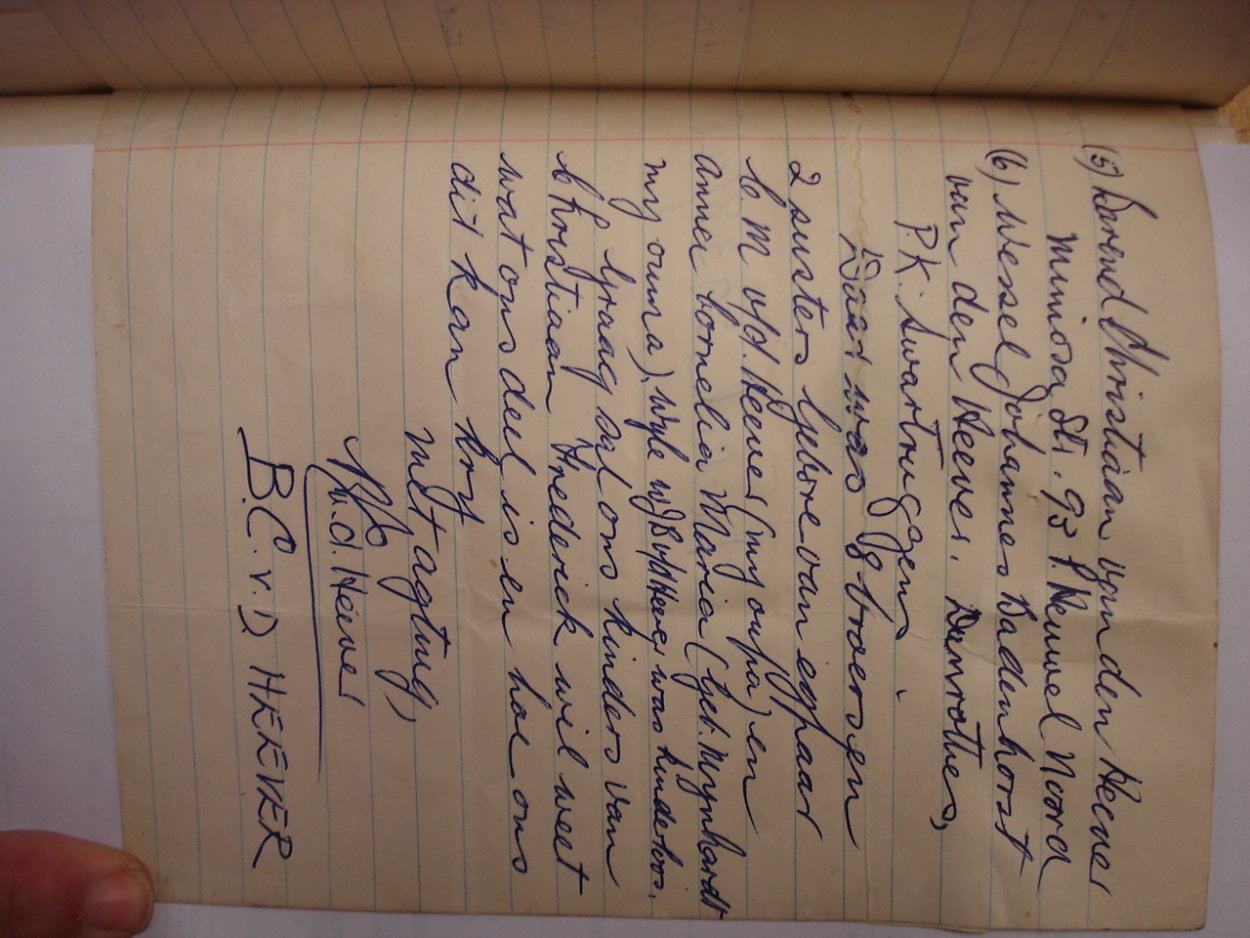 (5) Barend Christiaan van den Heever
Mimosa Str. 93 P. Heuwel Noord
(6) Wessel Johannes Badenhorst
van den Heever. Dunrothes,
P.K. Swartruggens,
Daar was 8 broers en
2 susters gebore van egpaar
C. M v/d. Heever (my oupa) en
Anna Cornelia Maria (geb. Mynhardt
my ouma), wyle WJB v/d Heever was kinderloos.
Graag sal ons kinders van
Christiaan Frederick wil weet
wat ons deel is en hoe ons
dit kan kry
Met agting,
v.d. Heever
B.C. v. D HEEVER